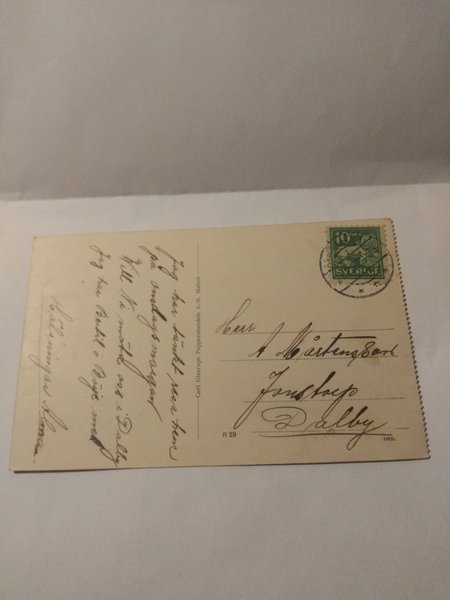 Jag har tänkt resa hem
på onsdagsmorgon
Will Ni möta oss i Dalby
Jag har Bedt o Böje med
Hälsningar
Carl Glaerups Pappershandels A.-B. Malmö
10
SVERIGE
Herr
A Mårtensson
Jonstorp
Dalby
R 29